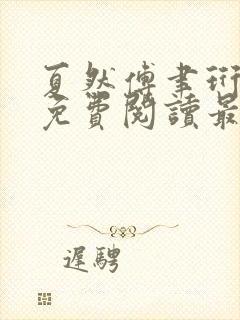 夏然傅書珩
免費閱讀最
遲騁